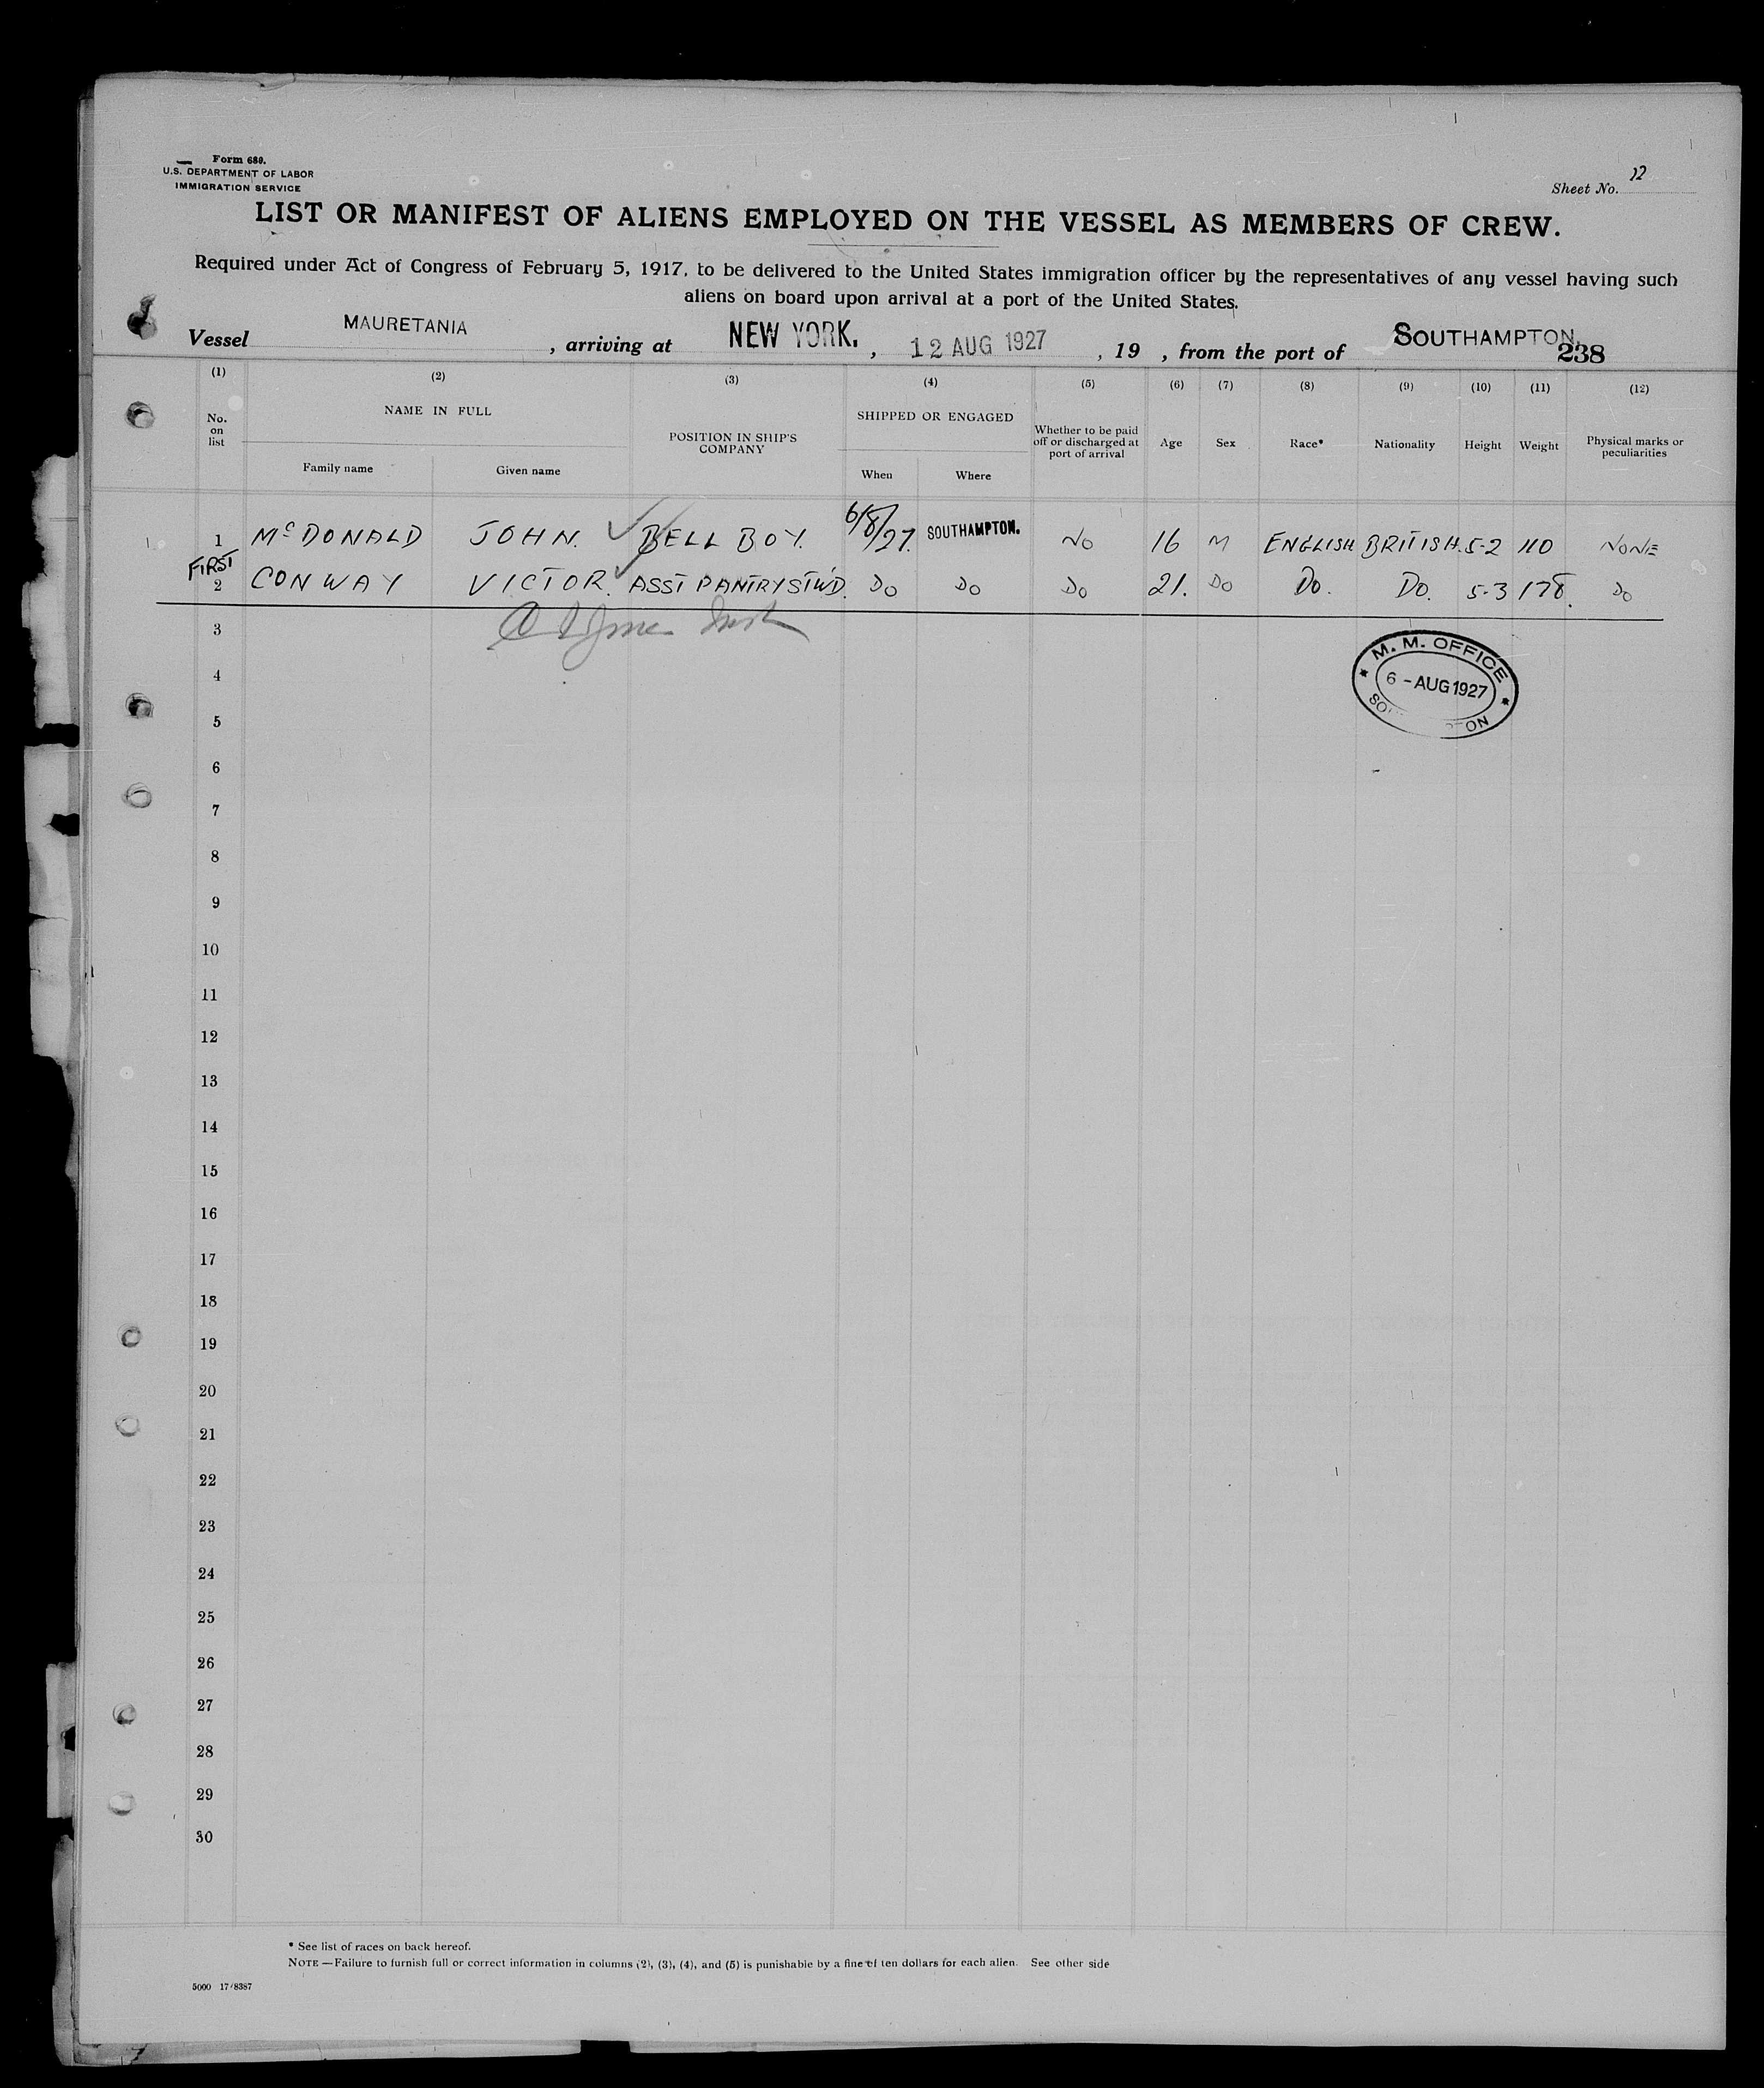 Form 689.
U.S. DEPARTMENT OF LABOR
IMMIGRATION SERVICE
Sheet No. 12
LIST OR MANIFEST OF ALIENS EMPLOYED ON THE VESSEL AS MEMBERS OF CREW.
Required under Act of Congress of February 5, 1917, to be delivered to the United States immigration officer by the representatives of any vessel having such
aliens on board upon arrival at a port of the United States.
Vessel MAURETANIA , arriving at NEW YORK. , 12 AUG 1927 , 19 , from the port of SOUTHAMPTON.
238
(1) (2) (3) (4) (5) (6) (7) (8) (9) (10) (11) (12)
No. on list NAME IN FULL POSITION IN SHIP'S COMPANY SHIPPED OR ENGAGED Whether to be paid off or discharged at port of arrival Age Sex Race* Nationality Height Weight Physical marks or peculiarities
Family name Given name When Where
1 McDONALD JOHN. BELL BOY. 6/8/27. SOUTHAMPTON. NO 16 M ENGLISH BRITISH. 5-2 110 NONE
FIRST
2 CONWAY VICTOR. ASST PANTRY STWD. DO DO DO 21. DO DO. DO. 5-3 178. DO
3
M. M. OFFICE
4
6 - AUG 1927
5
6
7
8
9
10
11
12
13
14
15
16
17
18
19
20
21
22
23
24
25
26
27
28
29
30
* See list of races on back hereof.
NOTE—Failure to furnish full or correct information in columns (2), (3), (4), and (5) is punishable by a fine of ten dollars for each alien. See other side
5000 17/8387